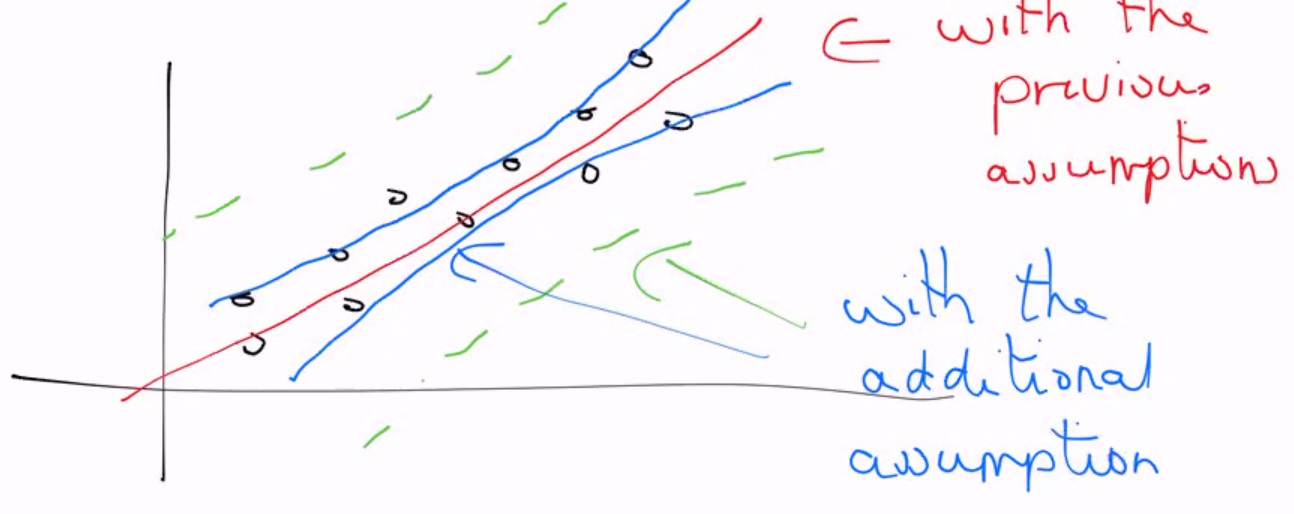 with the
previous
assumptions
with the
additional
assumption